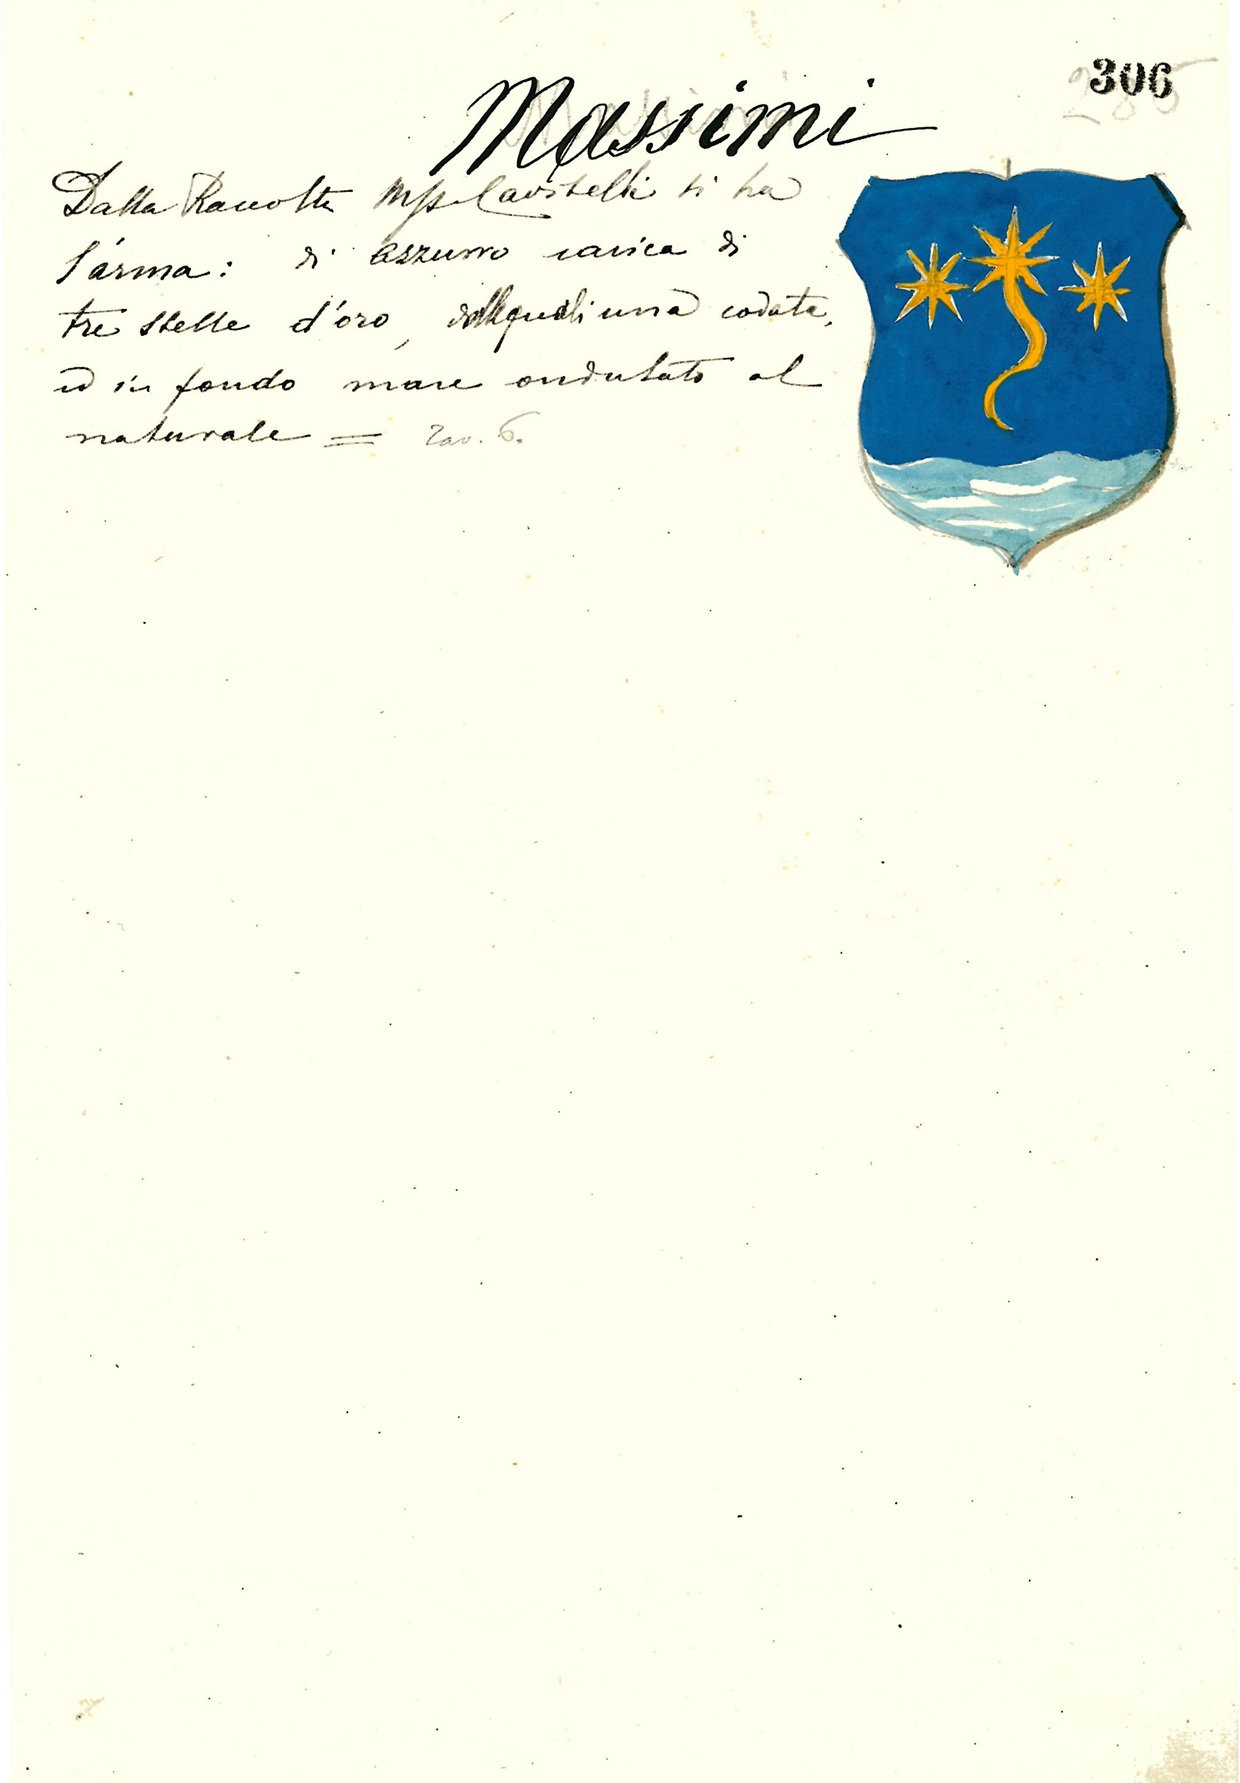 306
Massimi
Dalla Raccolta Mss. Cavitelli si ha
l'arma: di azzurro carica di
tre stelle d'oro, delle quali una codata,
ed in fondo mare ondulato al
naturale = Tav. 6.